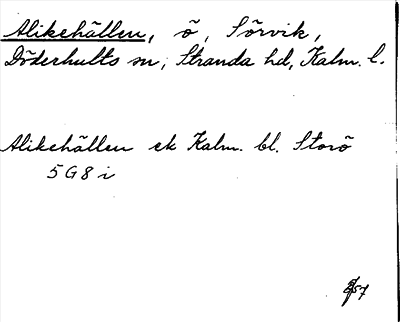 Alikehällen, ö, Sörvik,
Döderhults sn, Stranda hd, Kalm. l.
Alikehällen ek Kalm. bl. Storö
5 G 8 i